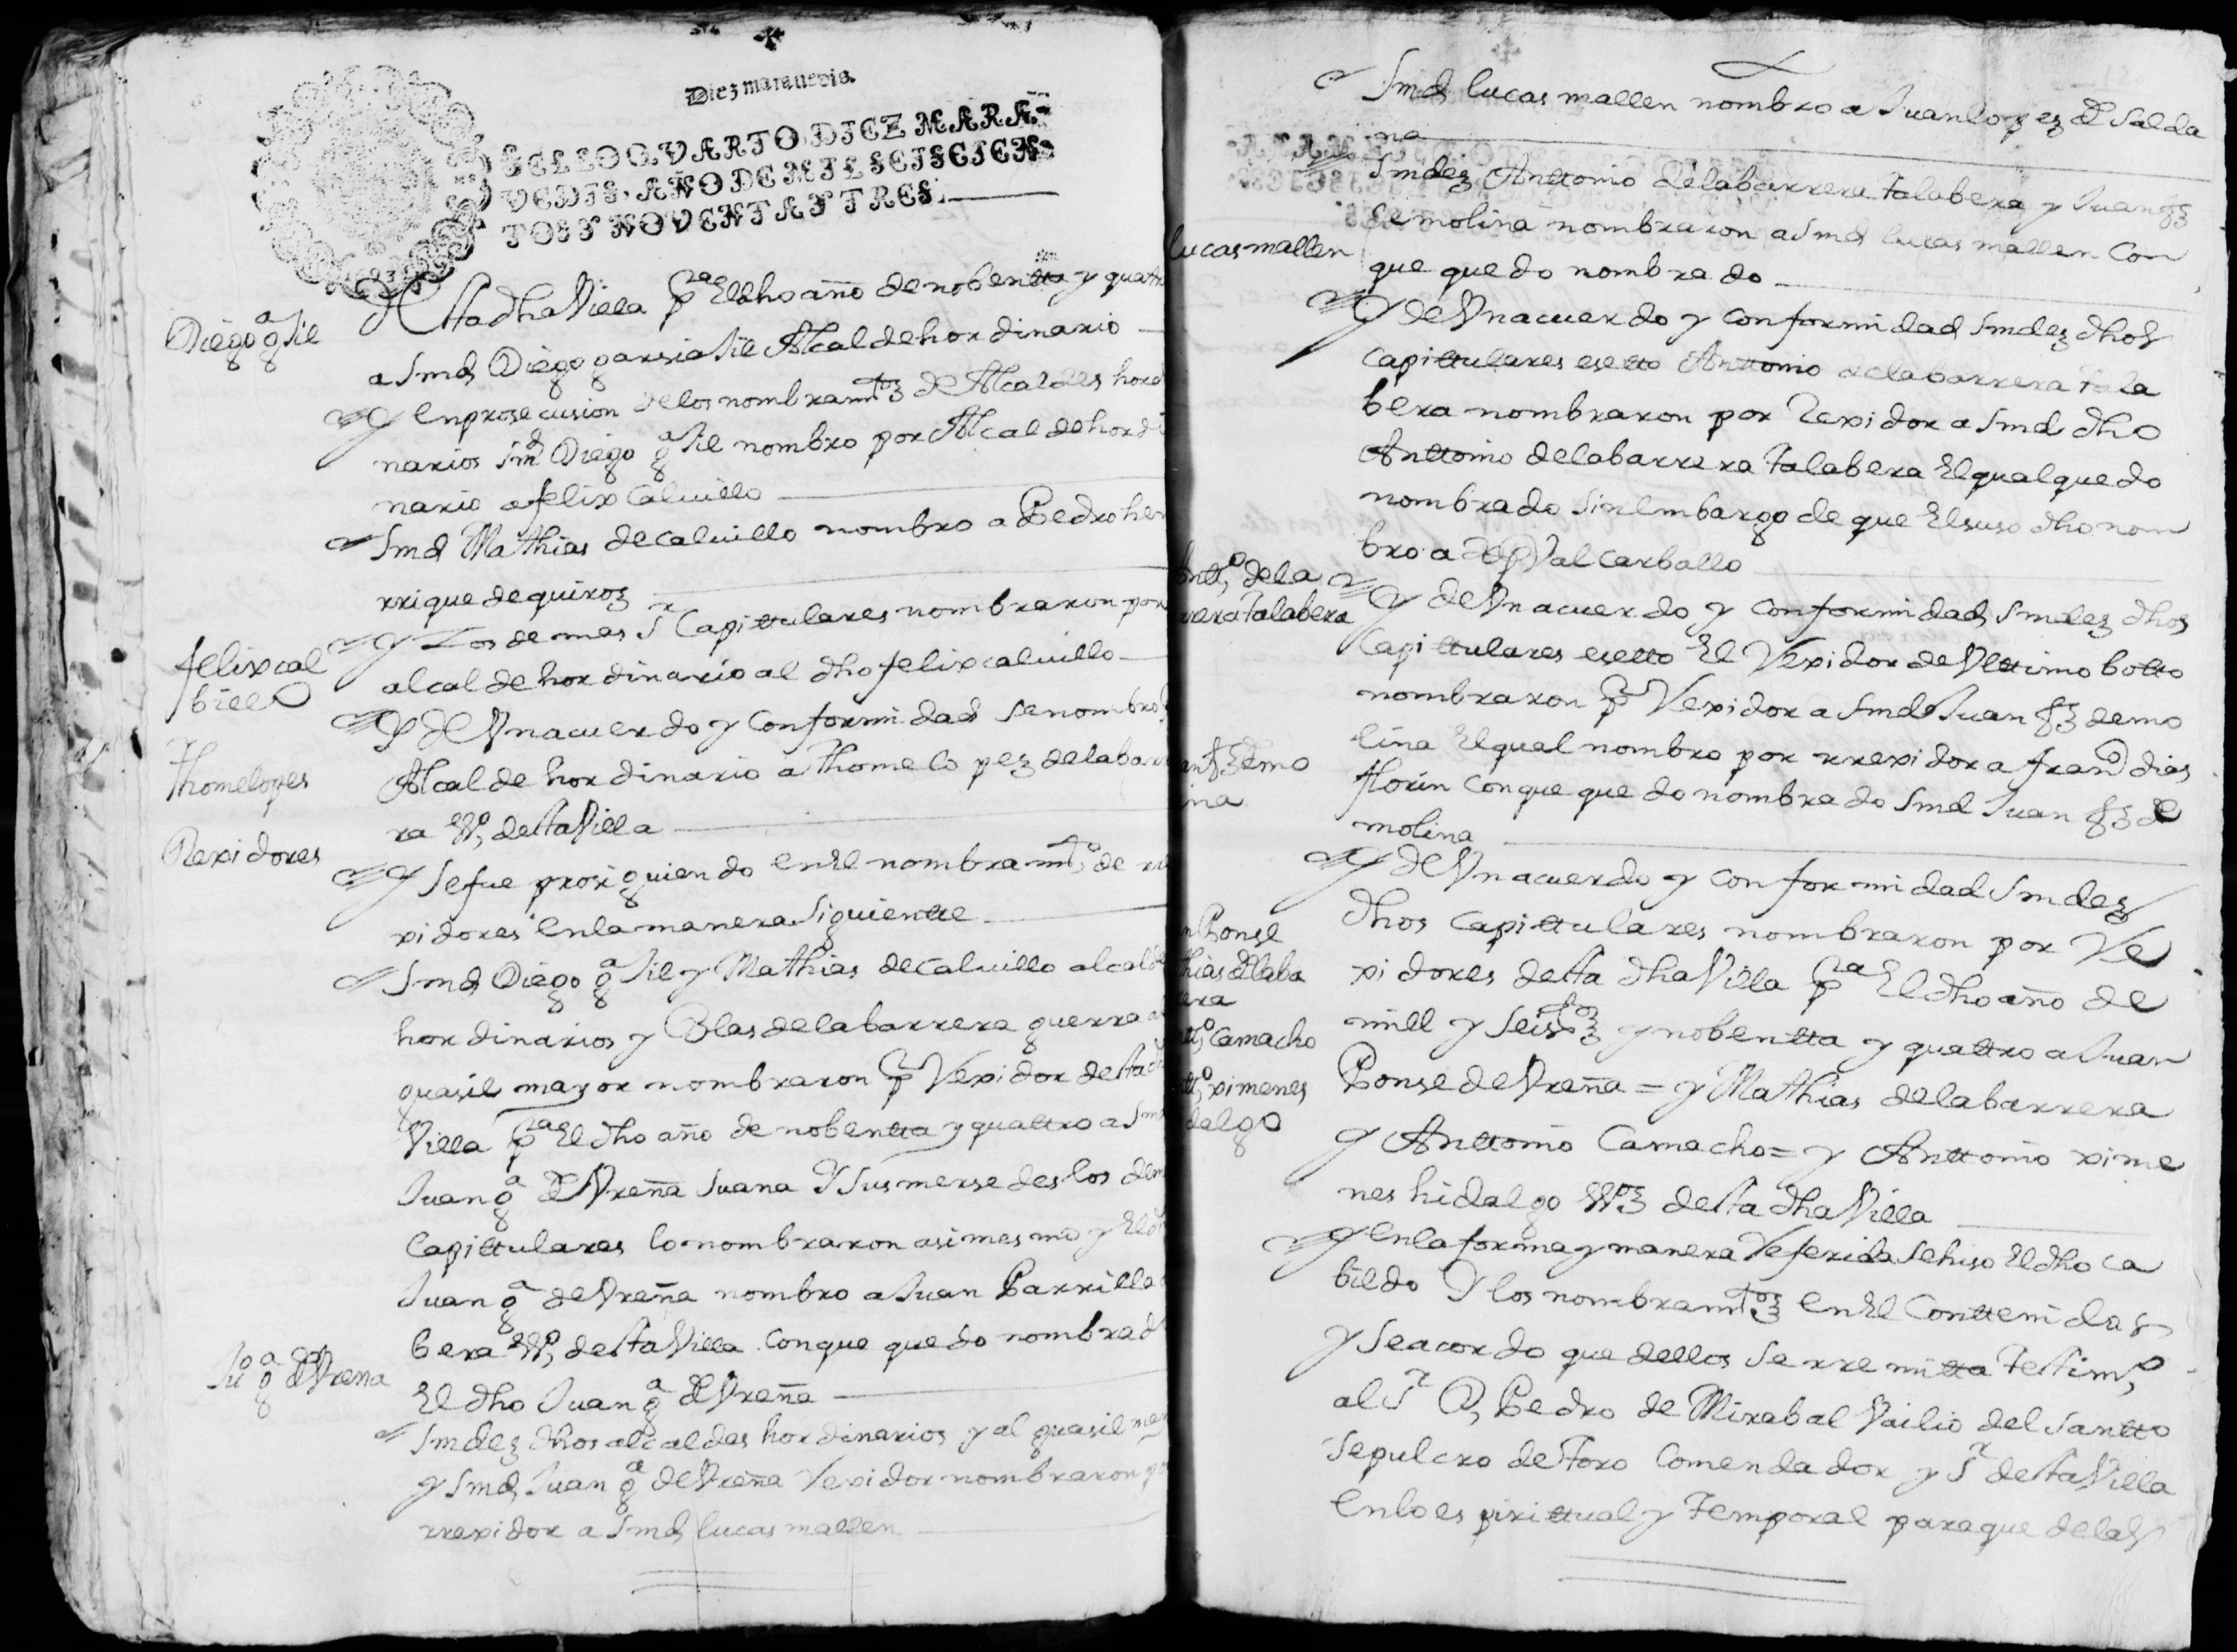 Diez marauedis.
SELLO QVARTO, DIEZ MARA-
VEDIS, AÑO DE MIL SEISCIEN-
TOS Y NOVENTA Y TRES.
desta dha Villa pa El dho año de nobentta y quatro
Diego ga Jil
a smd Diego garsia Jil Alcalde hordinario
y En prosecusion de los nombramtos de Alcaldes hord
narios smd Diego ga Jil nombro por Alcalde hordi
nario a felix Caluillo
Smd Mathias de caluillo nombro a Pedro hen
rrique de quiros
y Los demas sr Capittulares nombraron por
felix cal
billo
alcalde hordinario al dho felix caluillo
Y de Vn acuerdo y conformidad se nombro
Thome lopes
Alcalde hordinario a Thome lopez de la bar
ra Vo desta Villa
Rexidores
y se fue prosiguiendo en El nombramto de rre
xidores en la manera siguientte
Smd Diego ga Jil y Mathias de Caluillo alcalde
hordinarios y Blas de la barrera guerra al
guasil mayor nombraron pr Rexidor desta
Villa pa El dho año de nobentta y quattro a Smd
Juan ga de Vreña Juana Y sus mersedes los dem
Capittulares lo nombraron asimesmo y El
Juan ga de Vreña nombro a Juan Parrilla
bera Vo desta Villa con que quedo nombrado
Juo ga de Vreña
El dho Juan ga de Vreña
Smdez dhos alcaldes hordinarios y alguasil
y Smd Juan ga de Vreña Rexidor nombraron
rrexidor a Smd lucas mallen
Smd lucas mallen nombro a Juan lopez de Salda
na
Smdez Anttonio de la barrera talabera y Juan
de molina nombraron a Smd lucas mallen Con
lucas mallen
que quedo nombrado
Y de Vn acuerdo y conformidad Smdez dhos
Capittulares esetto Anttonio de la barrera tala
bera nombraron por Rexidor a Smd dho
Anttonio de la barrera talabera El qual quedo
nombrado sin embargo de que El suso dho nom
bro a Carballo
Antto de la
rrera talabera
Y de Vn acuerdo y conformidad Smdez dhos
Capittulares esetto El Rexidor de Vlttimo botto
nombraron pr Rexidor a Smd Juan fz de mo
lina El qual nombro por rrexidor a franco dias
an fz de mo
ina
florin con que quedo nombrado Smd Juan fz de
molina
Y de Vn acuerdo y conformidad Smdez
dhos Capittulares nombraron por Re
n Ponse
thias de la ba
rera
xidores desta dha Villa pa El dho año de
mill y seistos y nobentta y quattro a Juan
tto Camacho
Ponse de Vreña = y Mathias de la barrera
tto ximenes
dalgo
y Anttonio Camacho = y Anttonio xime
nes hidalgo Vos desta dha Villa
y en la forma y manera Referida se hiso El dho ca
bildo Y los nombramtos en El Conttenidos
y se acordo que dellos se rremitta testimo
al Sr D, Pedro de Mirabal Vailio del Santto
Sepulcro de toro Comendador y Sr desta Villa
en lo espirittual y temporal para que de las